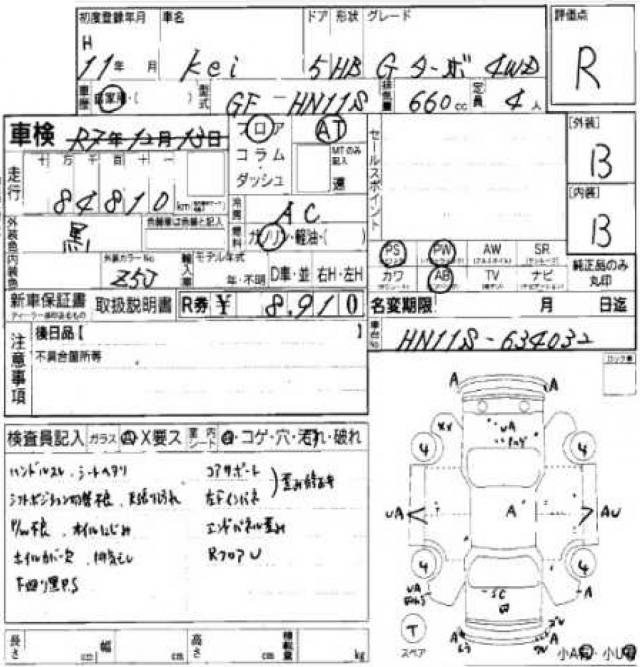 初度登録年月 車名 ドア 形状 グレード 評価点
H
11年 月 Kei 5 HB G ターボ 4WD R
車歴 自家用・( ) 型式 GF-HN11S 排気量 660cc 定員 4人
車検 R7年12月13日 フロア AT
コラム・ MTのみ記入
ダッシュ 速
セールスポイント
[外装]
B
[内装]
B
走行 十 万 千 百 十 一
84810 km
冷房 AC
外装色 黒 色替車は色替と記入
燃料 ガソリン・軽油・( )
PS PW AW SR
カワ AB TV ナビ 純正品のみ丸印
内装色 外装カラーNo Z5J 輸入車 モデル年式 年・不明 D車・並 右H・左H
新車保証書 取扱説明書 R券 ¥ 8,910 名変期限 月 日迄
ディーラー捺印あるもの
車台No HN11S-634032
注意事項 後日品【 】
不具合箇所等
ロック車
検査員記入 ガラス A X要ス 室内シート コゲ・穴・汚れ・破れ
ハンドルスレ、シートヘタリ コアサポート
シフトポジション切替不良、天張り汚れ
エンドパネル歪み
RフロアU
下回り黒P.S
A A
XX UA
4 4
UA A AU
4 4
UA SC A
T
スペア
A A
長さ cm 幅 cm 高さ cm 積載量 kg